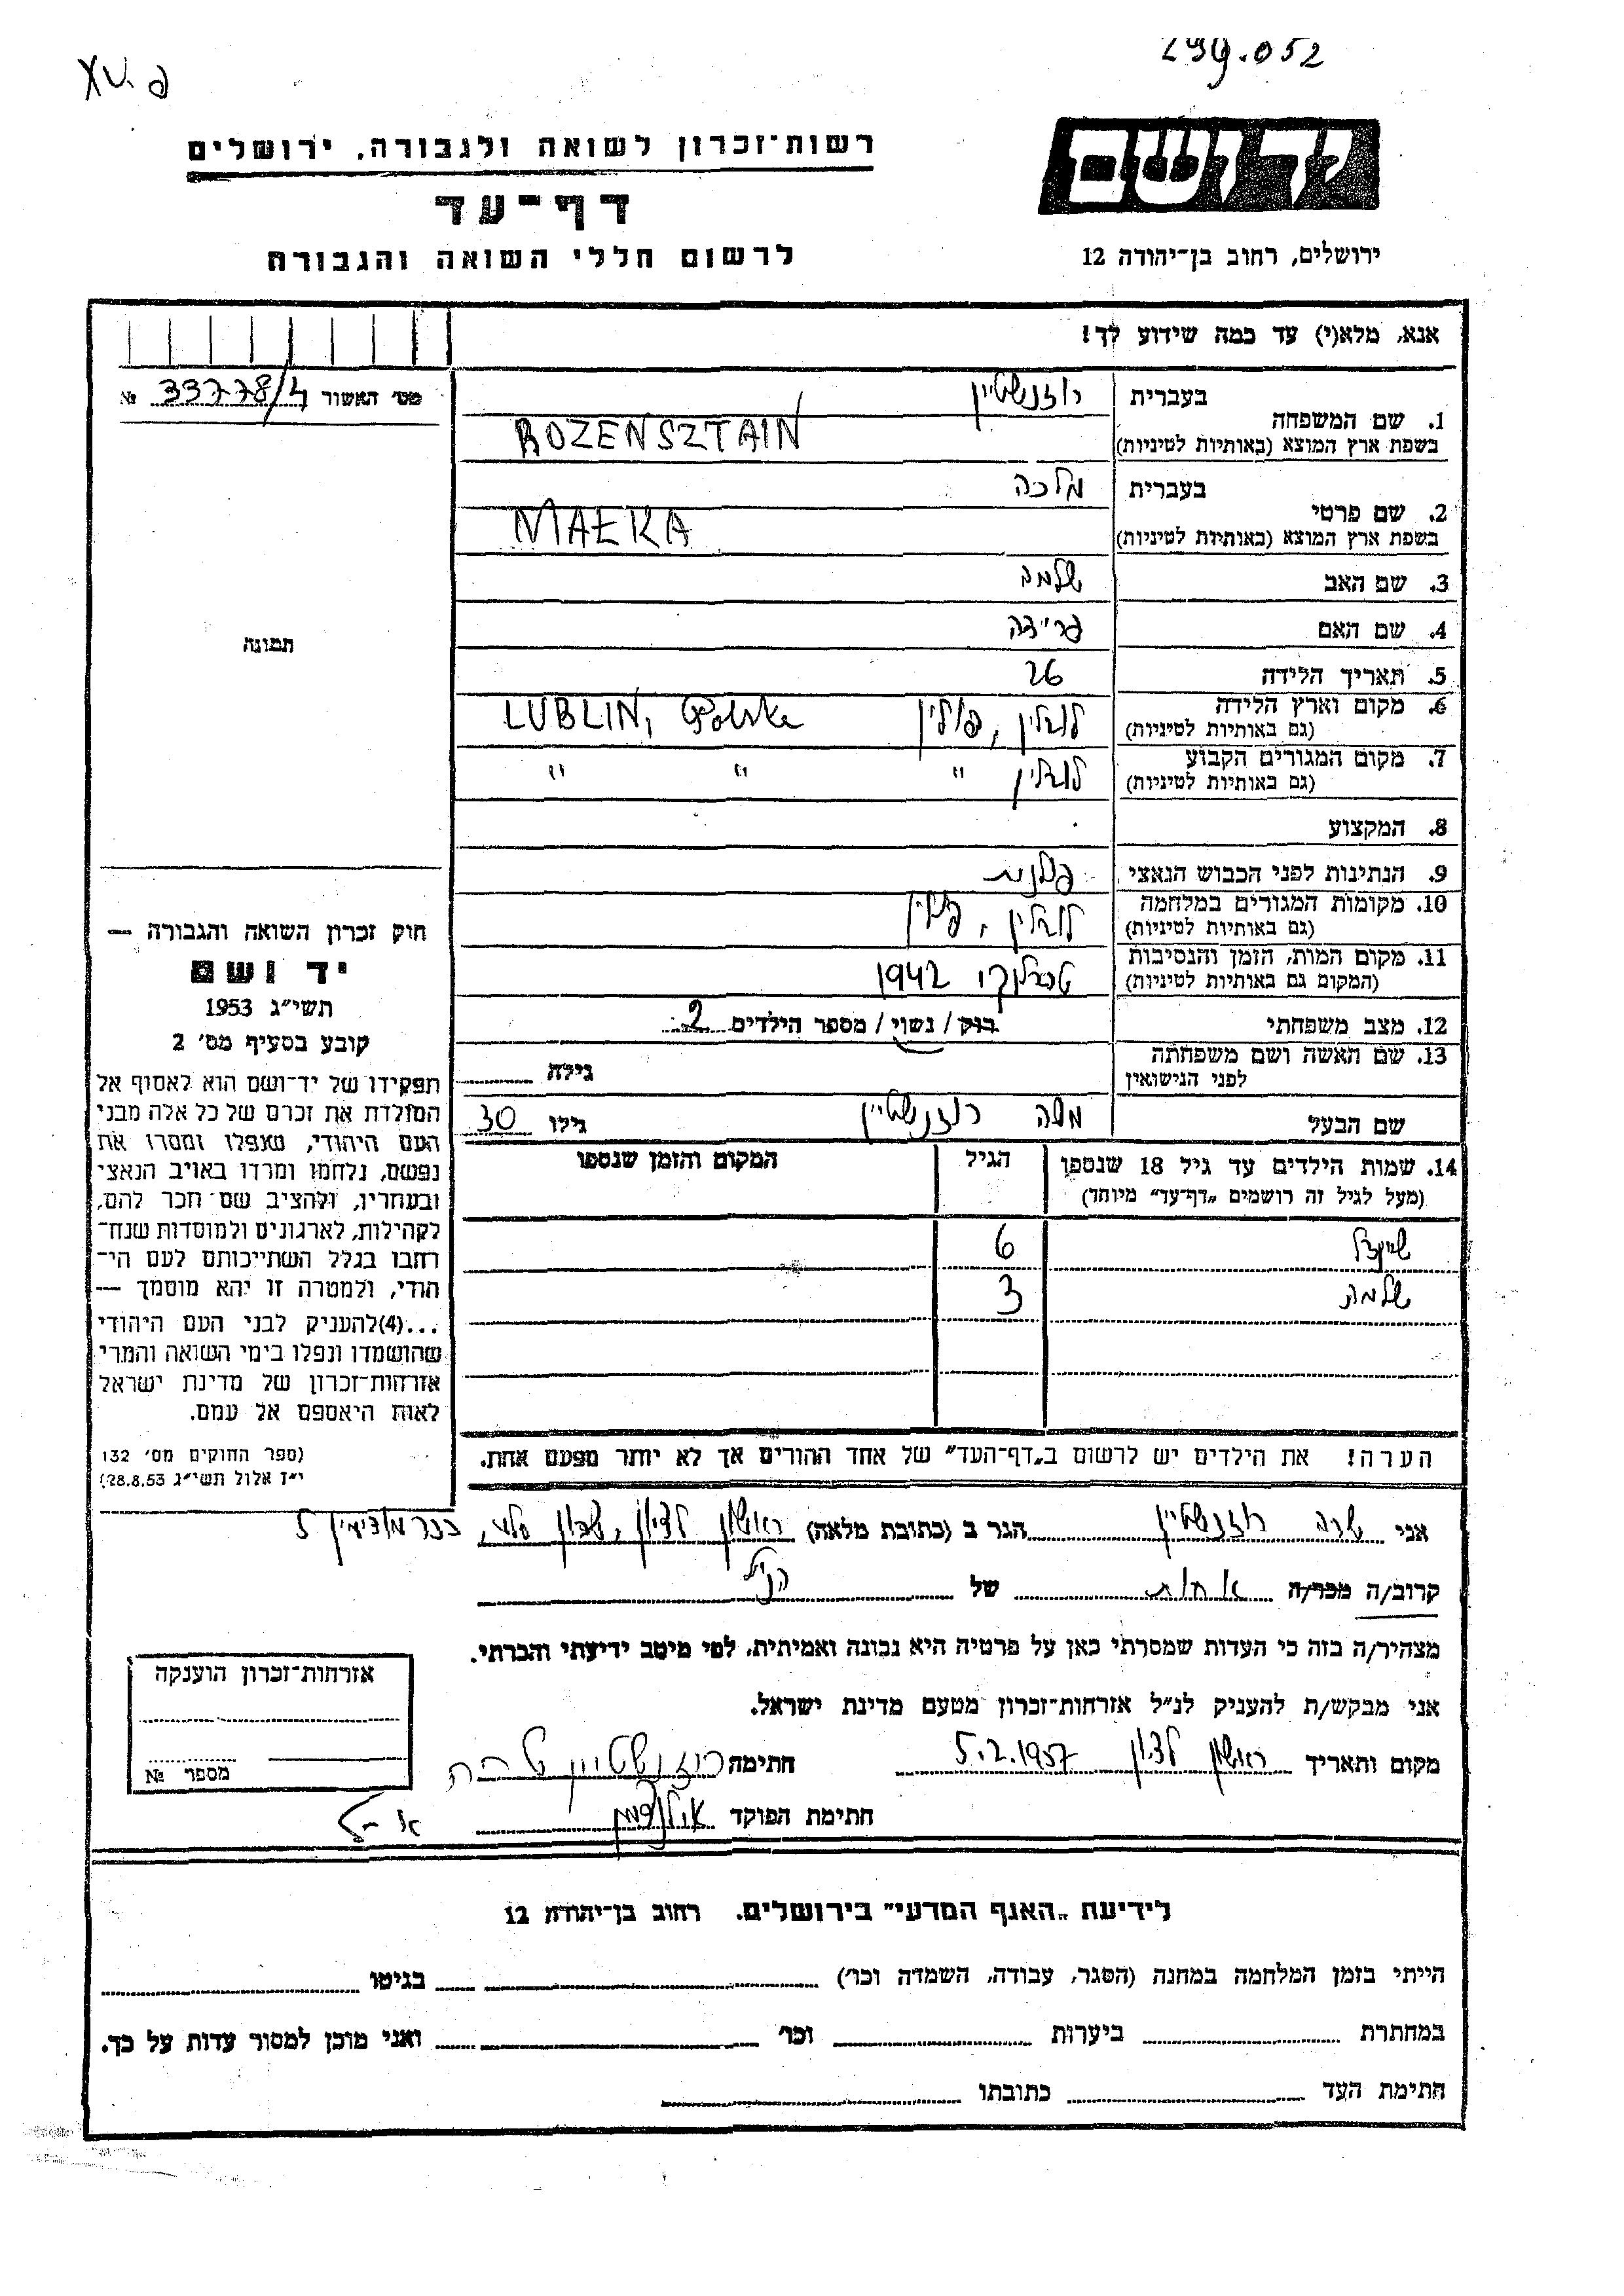 299.052
XV. פ
יד ושם
רשות־זכרון לשואה ולגבורה, ירושלים
דף־עד
לרשום חללי השואה והגבורה
ירושלים, רחוב בן־יהודה 12
אנא, מלא(י) עד כמה שידוע לך!
מס׳ האשור 33778/4 №
1. שם המשפחה
בעברית רוזנשטיין
בשפת ארץ המוצא (באותיות לטיניות) ROZENSZTAIN
2. שם פרטי
בעברית מלכה
בשפת ארץ המוצא (באותיות לטיניות) MAŁKA
3. שם האב שלמה
4. שם האם
5. תאריך הלידה 26
6. מקום וארץ הלידה
(גם באותיות לטיניות) לובלין, פולין LUBLIN, Polska
7. מקום המגורים הקבוע
(גם באותיות לטיניות) לובלין " " "
8. המקצוע
9. הנתינות לפני הכבוש הנאצי פולנית
10. מקומות המגורים במלחמה
(גם באותיות לטיניות) לובלין, פולין
11. מקום המות, הזמן והנסיבות
(המקום גם באותיות לטיניות) טרבלינקי 1942
12. מצב משפחתי רווק / נשוי / מספר הילדים 2
13. שם האשה ושם משפחתה
לפני הנישואין גילה
שם הבעל משה רוזנשטיין גילו 30
14. שמות הילדים עד גיל 18 שנספו הגיל המקום והזמן שנספו
(מעל לגיל זה רושמים „דף־עד” מיוחד)
שיינדל 6
שלמה 3
הערה! את הילדים יש לרשום ב„דף־העד” של אחד ההורים אך לא יותר מפעם אחת.
תמונה
חוק זכרון השואה והגבורה —
יד ושם
תשי״ג 1953
קובע בסעיף מס׳ 2
תפקידו של יד־ושם הוא לאסוף אל
המולדת את זכרם של כל אלה מבני
העם היהודי, שנפלו ומסרו את
נפשם, נלחמו ומרדו באויב הנאצי
ובעוזריו, ולהציב שם וזכר להם,
לקהילות, לארגונים ולמוסדות שנח־
רבו בגלל השתייכותם לעם הי־
הודי, ולמטרה זו יהא מוסמך —
...(4)להעניק לבני העם היהודי
שהושמדו ונפלו בימי השואה והמרי
אזרחות־זכרון של מדינת ישראל
לאות היאספם אל עמם.
(ספר החוקים מס׳ 132
י״ז אלול תשי״ג 28.8.53)
אני שרה רוזנשטיין הגר ב (כתובת מלאה) ראשון לציון, 5
קרוב/ה מכר/ה אחות של הנ״ל
מצהיר/ה בזה כי העדות שמסרתי כאן על פרטיה היא נכונה ואמיתית, לפי מיטב ידיעתי והכרתי.
אני מבקש/ת להעניק לנ״ל אזרחות־זכרון מטעם מדינת ישראל.
מקום ותאריך ראשון לציון 5.2.1957 חתימה רוזנשטיין שרה
חתימת הפוקד
אזרחות־זכרון הוענקה
מספר №
לידיעת „האגף המדעי” בירושלים. רחוב בן־יהודה 12
הייתי בזמן המלחמה במחנה (הסגר, עבודה, השמדה וכו׳) בגיטו
במחתרת ביערות וכו׳ ואני מוכן למסור עדות על כך.
חתימת העד כתובתו